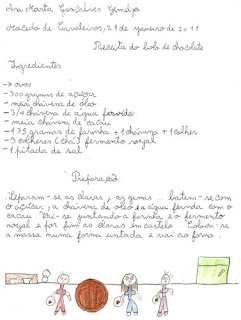 Ana Marta Gonçalves Gemelga
Macedo de Cavaleiros, 21 de janeiro de 2011
Receita do bolo de chocolate
Ingredientes
→ ovos
- 300 gramas de açúcar
- meia chávena de óleo
- 3/4 chávena de água fervida
- meia chávena de cacau
- 175 gramas de farinha + 1 chávena + 1 colher
- 3 colheres (chá) fermento royal
- 1 pitada de sal
Preparação
Separam-se as claras, as gemas, batem-se com
o açúcar, a chávena de óleo e a água fervida com o
cacau. Vai-se juntando a farinha e o fermento
royal e por fim as claras em castelo. Coloca-se
a massa numa forma untada e vai ao forno.